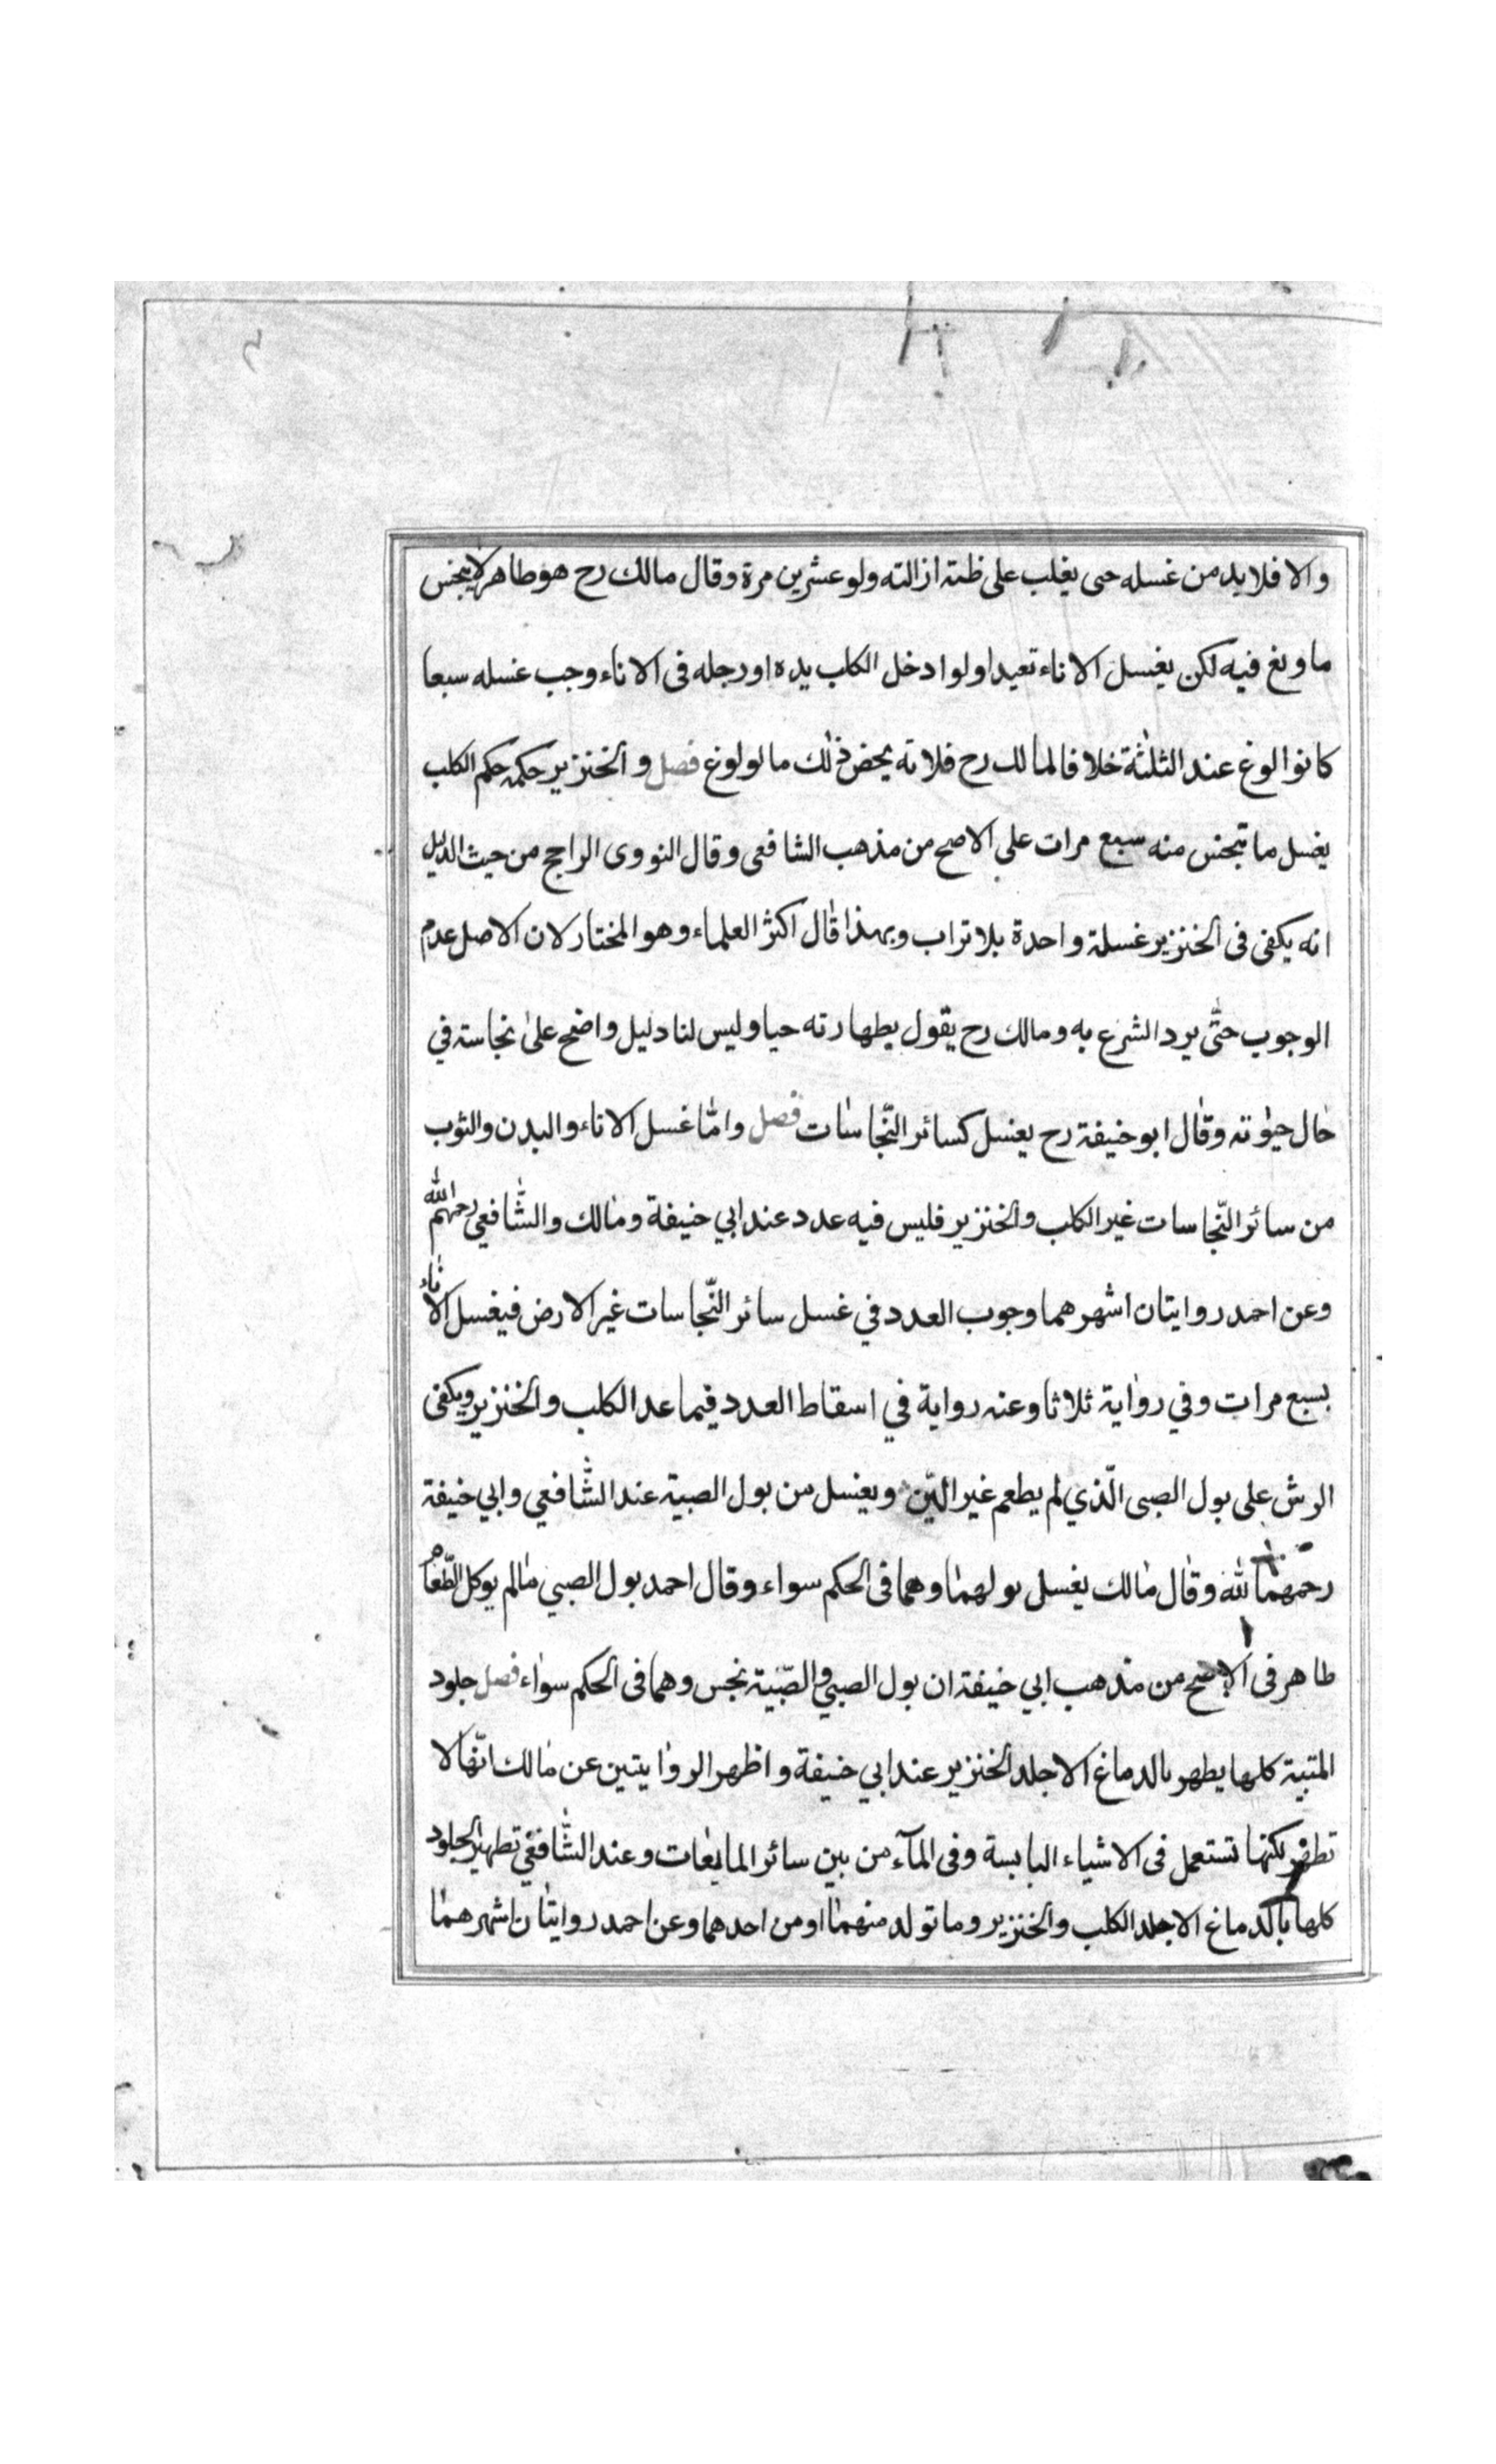 والا فلابد من غسله حتى يغلب على ظنه ازالته ولو عشرين مرة وقال مالك رح هو طاهر لا ينجس
ما ولغ فيه لكن يغسل الاناء تعبدا ولو ادخل الكلب يده او رجله فى الاناء وجب غسله سبعا
كالولوغ عند الثلثة خلافا لمالك رح فلانه يخص ذلك بالولوغ فصل والخنزير حكمه حكم الكلب
يغسل ما تنجس منه سبع مرات على الاصح من مذهب الشافعى وقال النووى الراجح من حيث الدليل
انه يكفى فى الخنزير غسلة واحدة بلا تراب وبهذا قال اكثر العلماء وهو المختار لان الاصل عدم
الوجوب حتّى يرد الشرع به ومالك رح يقول بطهارته حيا وليس لنا دليل واضح على نجاسته في
حال حيوته وقال ابو حنيفة رح يغسل كسائر النّجاسات فصل وامّا غسل الاناء والبدن والثوب
من سائر النّجاسات غير الكلب والخنزير فليس فيه عدد عند ابي حنيفة ومالك والشّافعي رحمهم الله
وعن احمد روايتان اشهرهما وجوب العدد في غسل سائر النّجاسات غير الارض فيغسل الاناء
بسبع مرات وفي رواية ثلاثا وعنه رواية في اسقاط العدد فيما عدا الكلب والخنزير ويكفى
الرش على بول الصبى الّذي لم يطعم غير اللبن ويغسل من بول الصبية عند الشّافعي وابي حنيفة
رحمهما الله وقال مالك يغسل بولهما وهما فى الحكم سواء وقال احمد بول الصبي مالم يوكل الطّعام
طاهر فى الاصح من مذهب ابي حنيفة ان بول الصبي والصّبية نجس وهما فى الحكم سواء فصل جلود
المتبية كلها يطهر بالدماغ الا جلد الخنزير عند ابي حنيفة واظهر الروايتين عن مالك انّها لا
تطهر لكنها تستعمل فى الاشياء اليابسة وفى المآء من بين سائر المايعات وعند الشّافعي تطهير الجلود
كلها بالدماغ الا جلد الكلب والخنزير وما تولد منهما او من احدهما وعن احمد روايتان اشهرهما